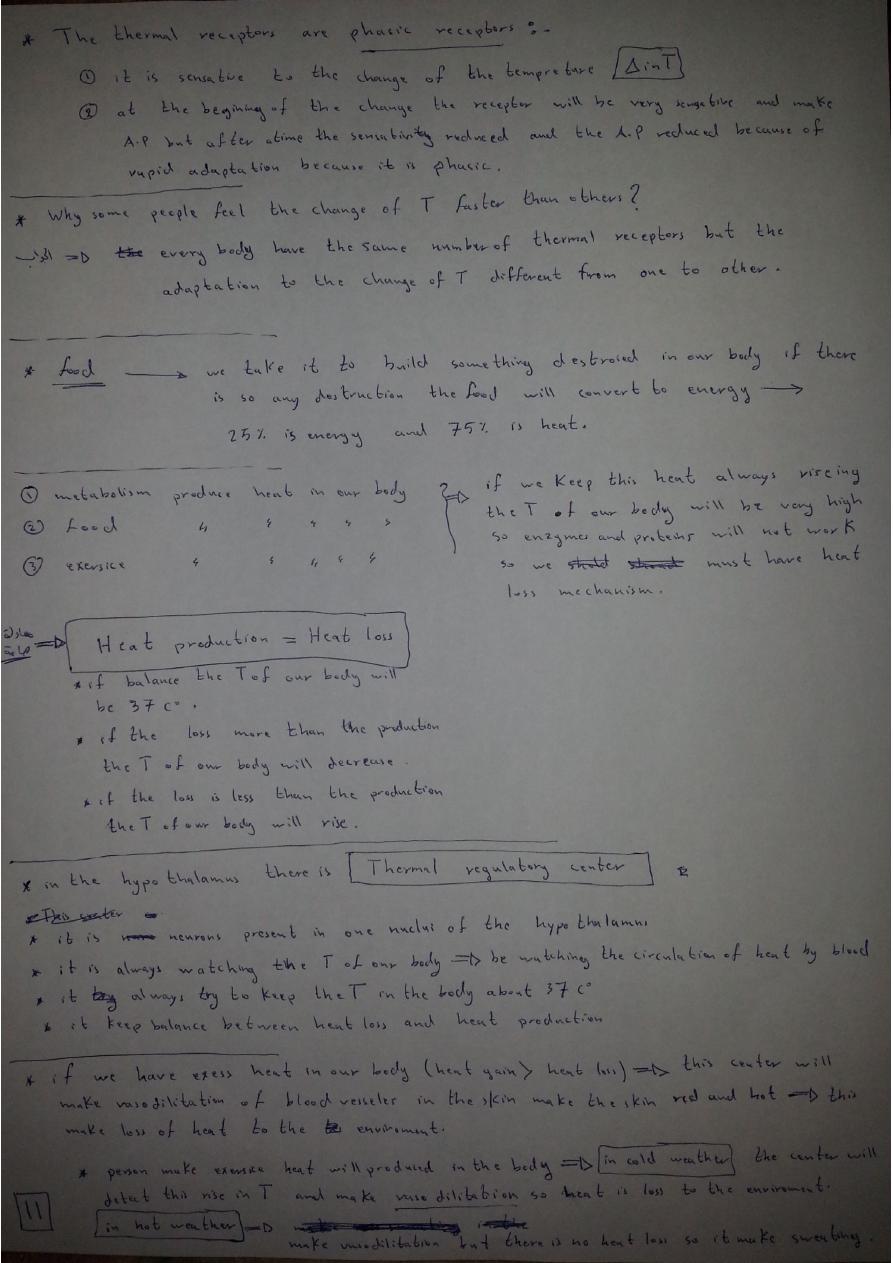 * The thermal receptors are phasic receptors :-
① it is sensative to the change of the tempreture Δ in T
② at the begining of the change the receptor will be very sensative and make
A.P but after atime the sensativity reduced and the A.P reduced because of
rapid adaptation because it is phasic.
* Why some people feel the change of T faster than others?
⇒ every body have the same number of thermal receptors but the
adaptation to the change of T different from one to other.
* food → we take it to build something destroied in our body if there
is so any destruction the food will convert to energy →
25% is energy and 75% is heat.
① metabolism produce heat in our body
② food " " " " "
③ exersice " " " " "
⇒ if we keep this heat always riseing
the T of our body will be very high
so enzymes and proteins will not work
so we must have heat
loss mechanism.
⇒ Heat production = Heat loss
* if balance the T of our body will
be 37 c° .
* if the loss more than the production
the T of our body will decrease .
* if the loss is less than the production
the T of our body will rise .
* in the hypothalamus there is Thermal regulatory center
* it is neurons present in one nuclui of the hypothalamus
* it is always watching the T of our body ⇒ be watching the circulation of heat by blood
* it always try to keep the T in the body about 37 c°
* it keep balance between heat loss and heat production
* if we have exess heat in our body (heat gain > heat loss) ⇒ this center will
make vasodilitation of blood vesseles in the skin make the skin red and hot ⇒ this
make loss of heat to the enviroment.
* person make exersice heat will produced in the body ⇒ in cold weather the center will
detect this rise in T and make vasodilitation so heat is loss to the enviroment.
in hot weather ⇒
make vasodilitation but there is no heat loss so it make sweating .
11